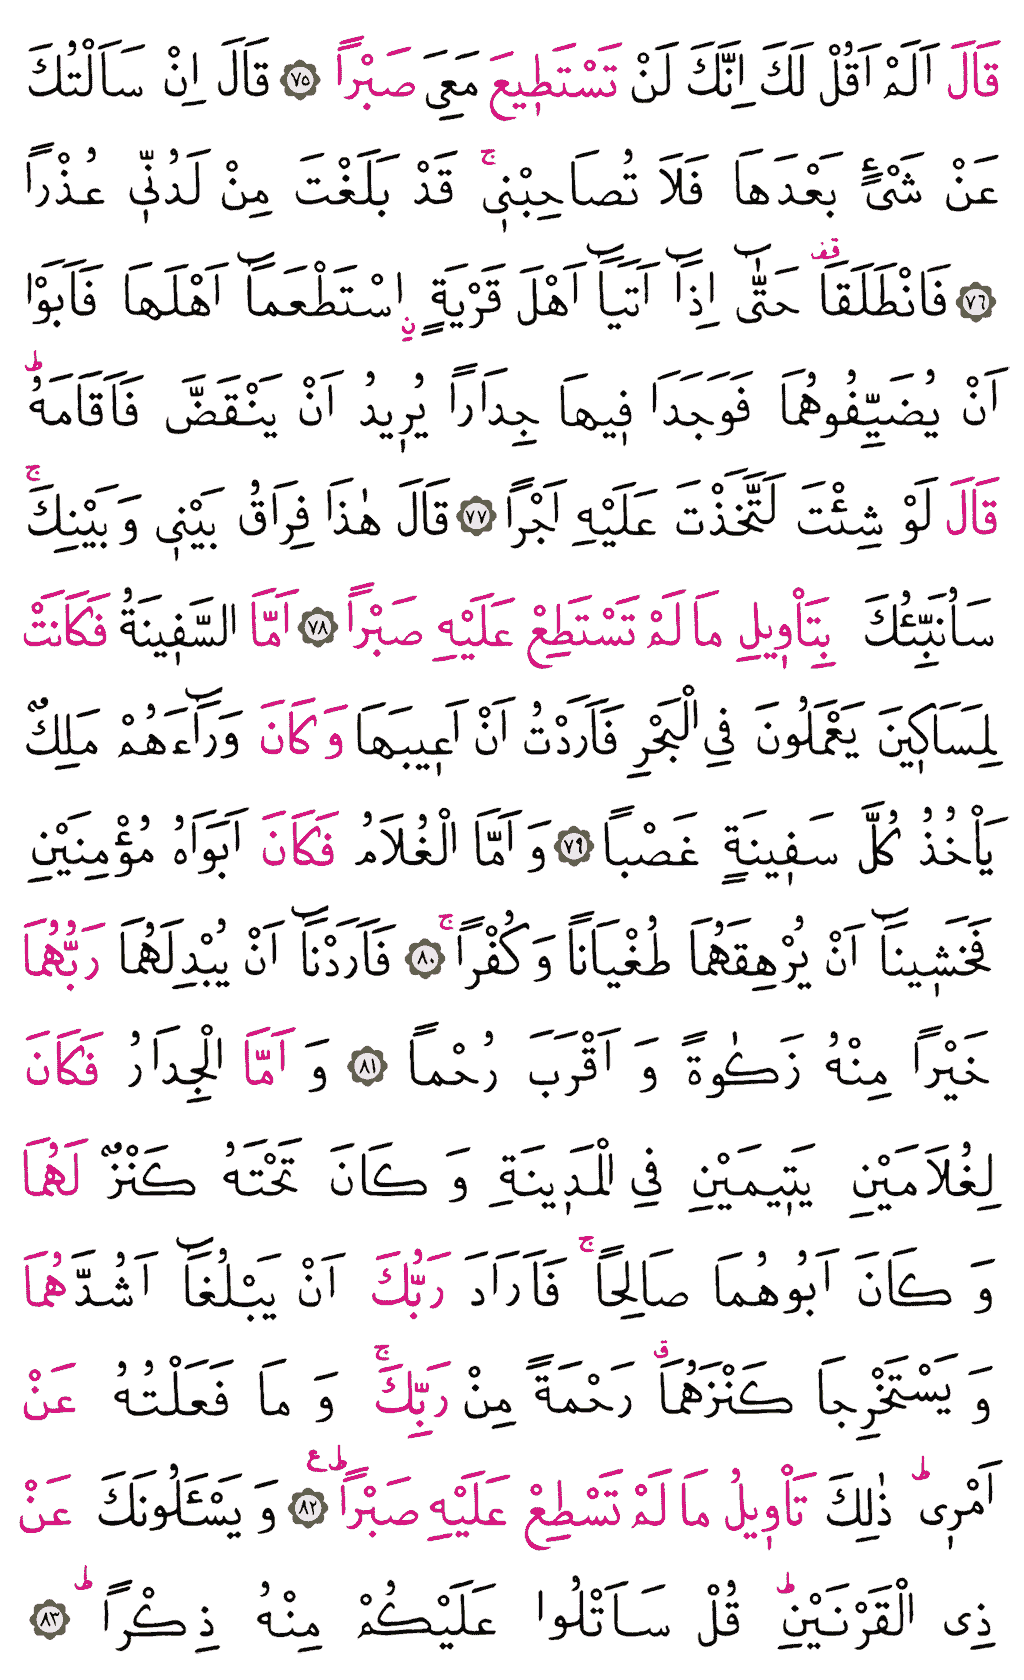 قَالَ اَلَمْ اَقُلْ لَكَ اِنَّكَ لَنْ تَسْتَطٖيعَ مَعِىَ صَبْراً ﴿٧٥﴾ قَالَ اِنْ سَاَلْتُكَ
عَنْ شَىْءٍ بَعْدَهَا فَلَا تُصَاحِبْنٖىۚ قَدْ بَلَغْتَ مِنْ لَدُنّٖى عُذْراً
﴿٧٦﴾ فَانْطَلَقَاࣞ حَتّٰٓى اِذَٓا اَتَيَٓا اَهْلَ قَرْيَةٍۨ اسْتَطْعَمَٓا اَهْلَهَا فَاَبَوْا
اَنْ يُضَيِّفُوهُمَا فَوَجَدَا فٖيهَا جِدَاراً يُرٖيدُ اَنْ يَنْقَضَّ فَاَقَامَهُؕ
قَالَ لَوْ شِئْتَ لَتَّخَذْتَ عَلَيْهِ اَجْراً ﴿٧٧﴾ قَالَ هٰذَا فِرَاقُ بَيْنٖى وَبَيْنِكَۚ
سَاُنَبِّئُكَ بِتَاْوٖيلِ مَا لَمْ تَسْتَطِعْ عَلَيْهِ صَبْراً ﴿٧٨﴾ اَمَّا السَّفٖينَةُ فَكَانَتْ
لِمَسَاكٖينَ يَعْمَلُونَ فِى الْبَحْرِ فَاَرَدْتُ اَنْ اَعٖيبَهَا وَكَانَ وَرَٓاءَهُمْ مَلِكٌ
يَاْخُذُ كُلَّ سَفٖينَةٍ غَصْباً ﴿٧٩﴾ وَاَمَّا الْغُلَامُ فَكَانَ اَبَوَاهُ مُؤْمِنَيْنِ
فَخَشٖينَٓا اَنْ يُرْهِقَهُمَا طُغْيَاناً وَكُفْراًۚ ﴿٨٠﴾ فَاَرَدْنَٓا اَنْ يُبْدِلَهُمَا رَبُّهُمَا
خَيْراً مِنْهُ زَكٰوةً وَاَقْرَبَ رُحْماً ﴿٨١﴾ وَاَمَّا الْجِدَارُ فَكَانَ
لِغُلَامَيْنِ يَتٖيمَيْنِ فِى الْمَدٖينَةِ وَكَانَ تَحْتَهُ كَنْزٌ لَهُمَا
وَكَانَ اَبُوهُمَا صَالِحاًۚ فَاَرَادَ رَبُّكَ اَنْ يَبْلُغَٓا اَشُدَّهُمَا
وَيَسْتَخْرِجَا كَنْزَهُمَاࣗ رَحْمَةً مِنْ رَبِّكَۚ وَمَا فَعَلْتُهُ عَنْ
اَمْرٖىؕ ذٰلِكَ تَاْوٖيلُ مَا لَمْ تَسْطِعْ عَلَيْهِ صَبْراًؕ ع ﴿٨٢﴾ وَيَسْـَٔلُونَكَ عَنْ
ذِى الْقَرْنَيْنِؕ قُلْ سَاَتْلُوا عَلَيْكُمْ مِنْهُ ذِكْراًؕ ﴿٨٣﴾